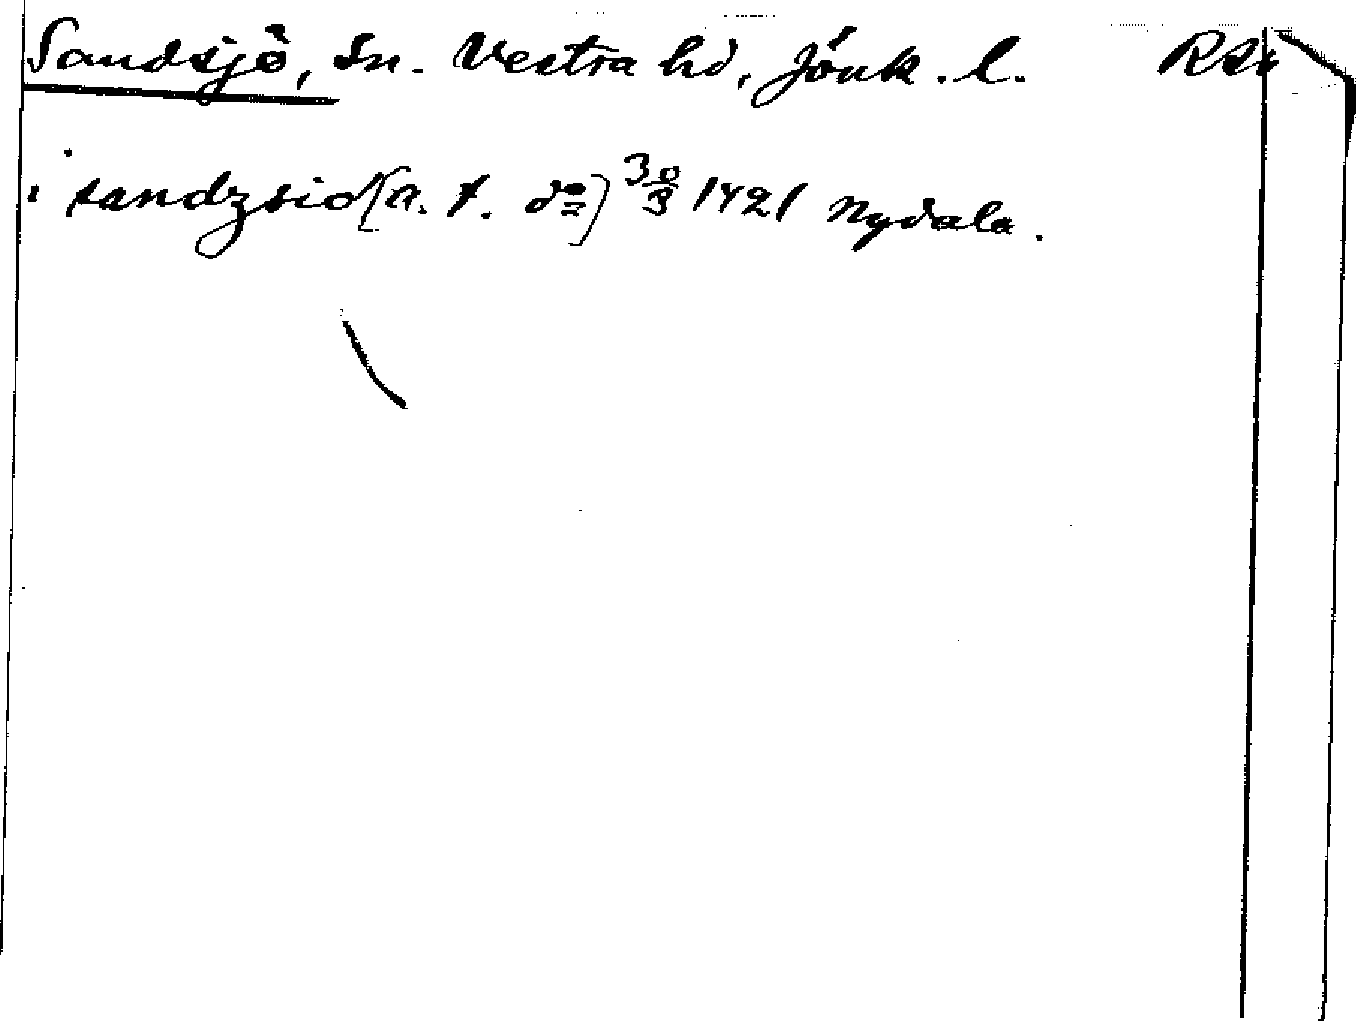 Sandsjö, Sn. Vestra hd, Jönk. l.
i sandzsio (a. f. do) 30/3 1421 Nydala.